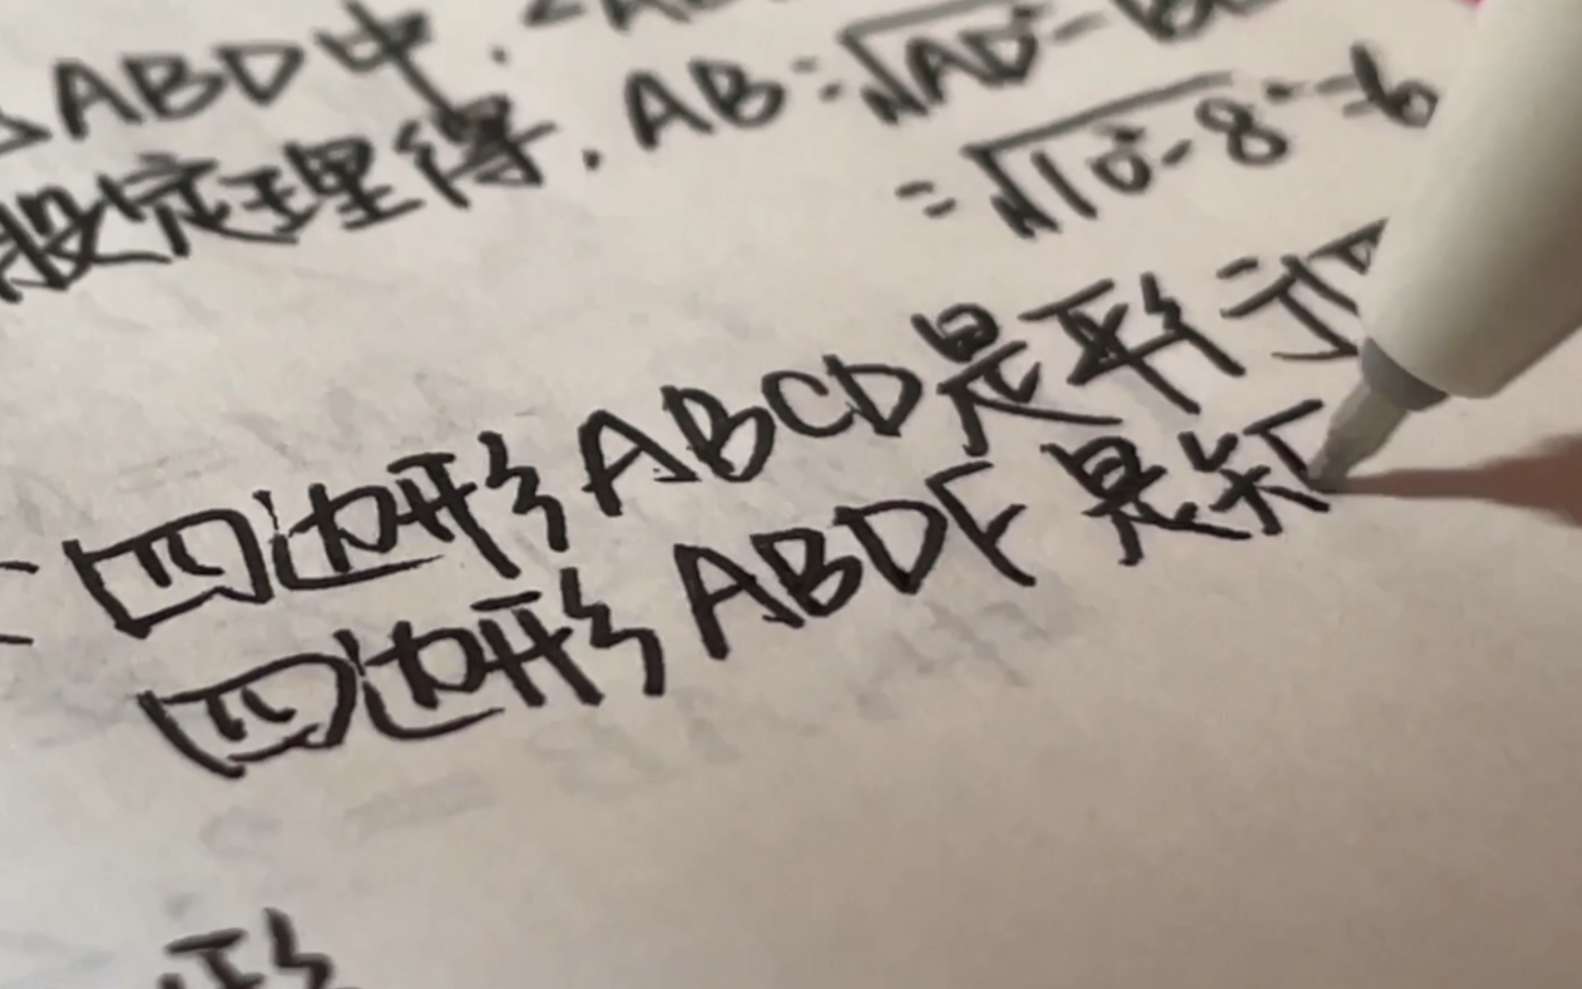 ABD中.
股定理得. AB=√AD²-
=√10²-8²=6
四边形ABCD是
四边形ABDF是
形